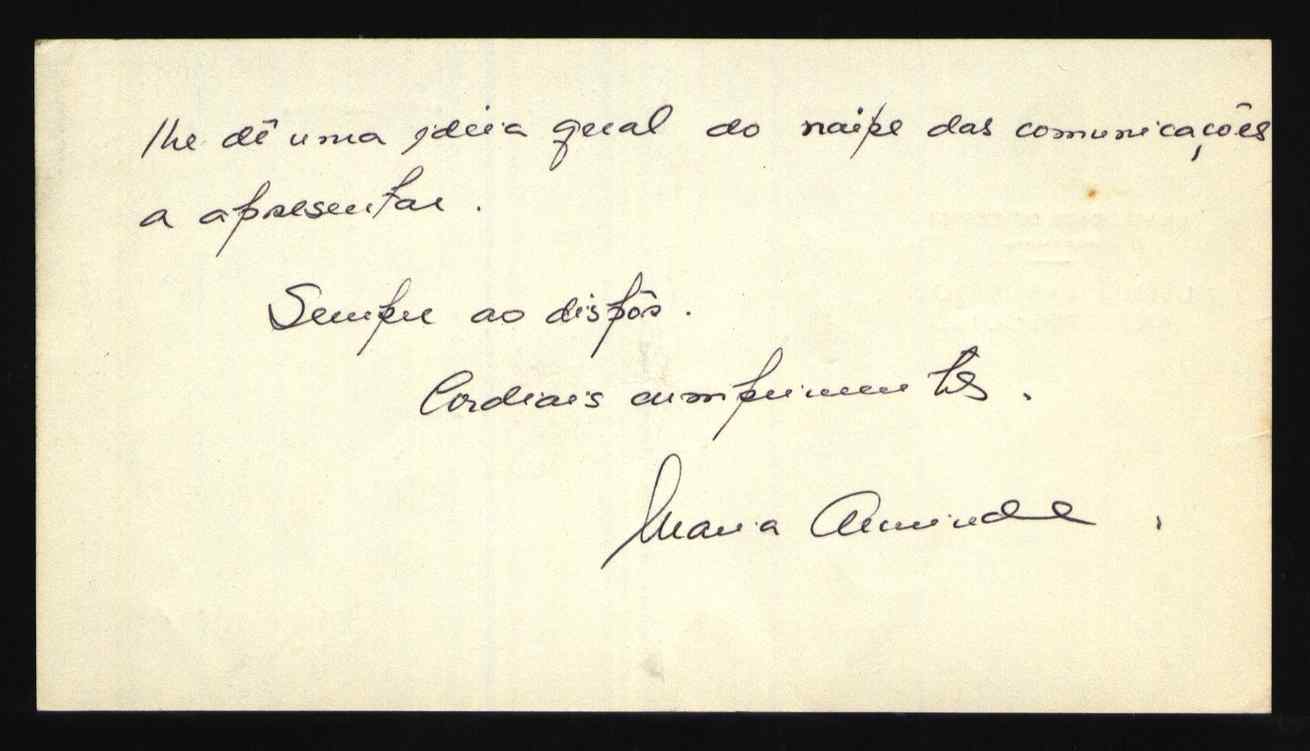 lhe dê uma ideia geral do naipe das comunicações
a apresentar.
Sempre ao dispôr.
Cordiais cumprimentos.
Maria Arminda